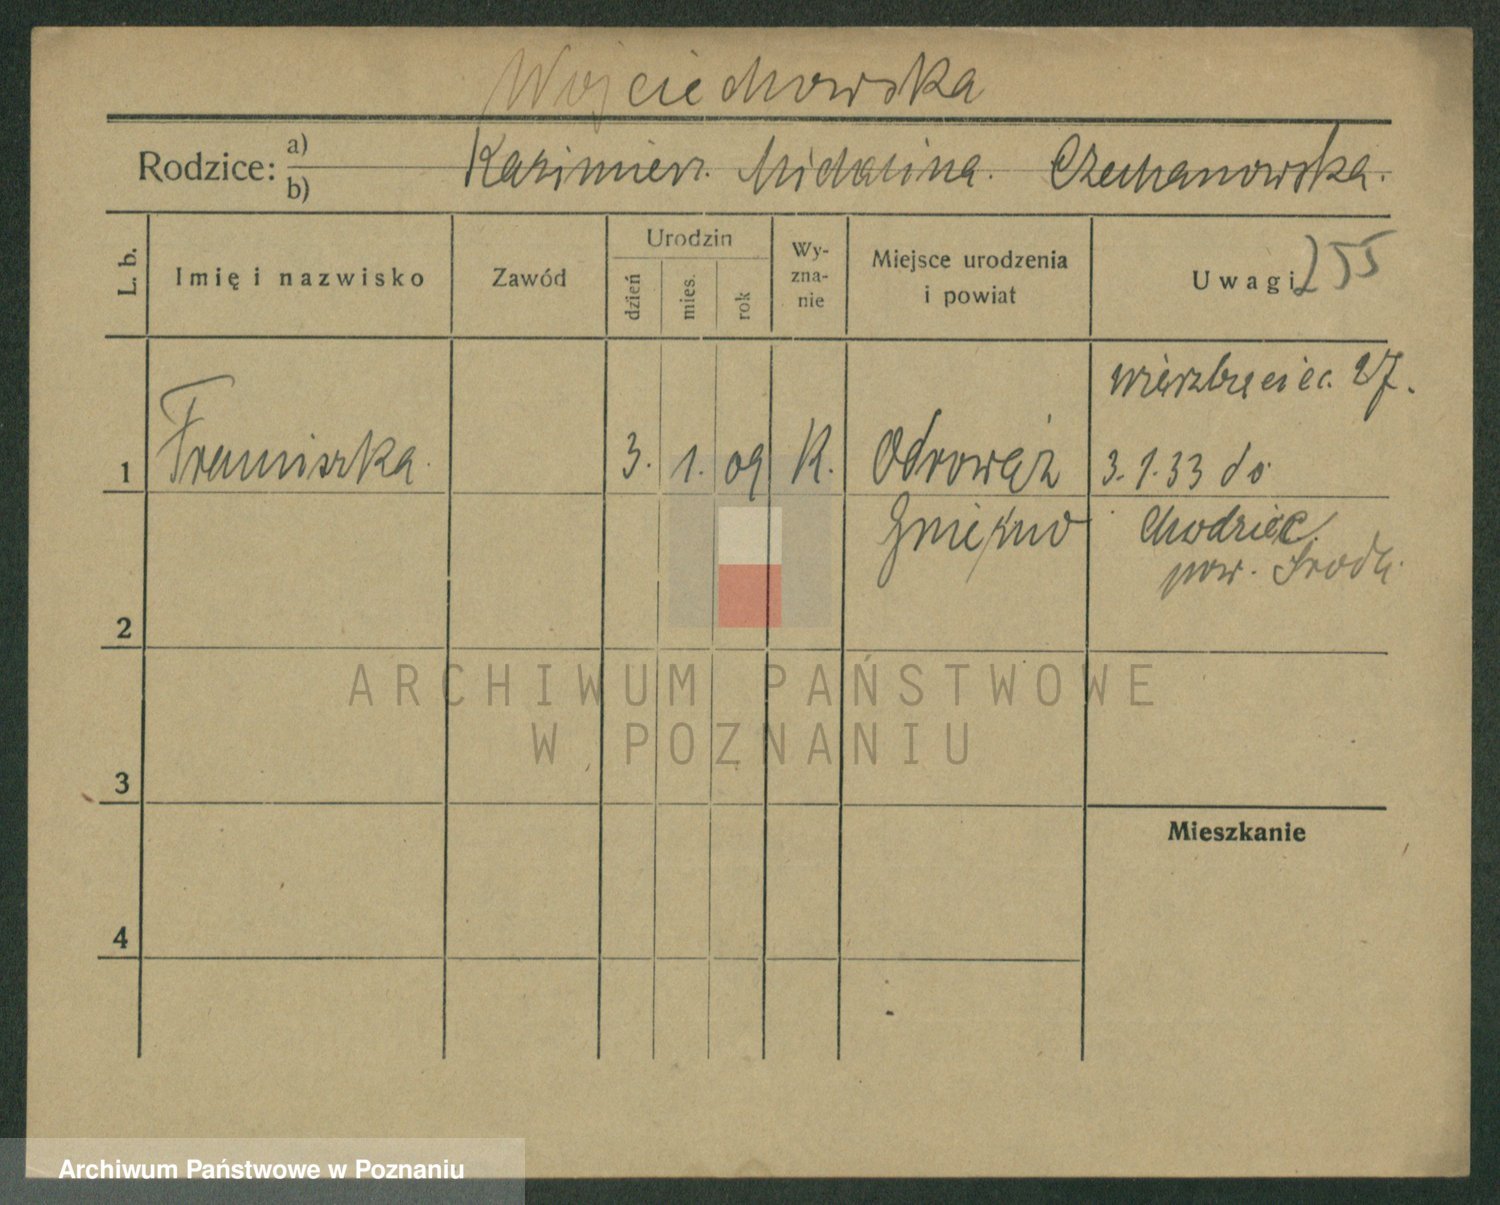 Wojciechowska
Rodzice: a) b) Kazimierz. Michalina. Czechanowska.
L. b.
Imię i nazwisko
Zawód
Urodzin
dzień
mies.
rok
Wy-
zna-
nie
Miejsce urodzenia
i powiat
Uwagi 255
Wierzbięcic. 27.
1 Franciszka. 3. 1. 09 K. Odrowąż 3.1.33 do
Gniezno
pow. Środa.
2
3
4
Mieszkanie
ARCHIWUM PAŃSTWOWE
W POZNANIU
Archiwum Państwowe w Poznaniu